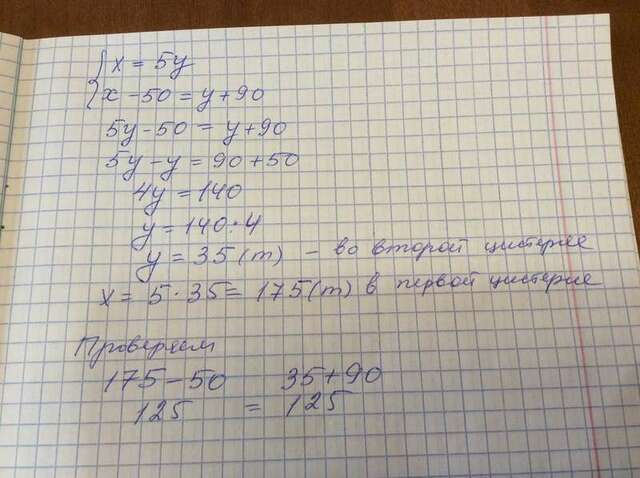 x = 5y
x - 50 = y + 90
5y - 50 = y + 90
5y - y = 90 + 50
4y = 140
y = 140 : 4
y = 35 (т) - во второй цистерне
x = 5 · 35 = 175 (т) в первой цистерне
Проверяем
175 - 50 35 + 90
125 = 125